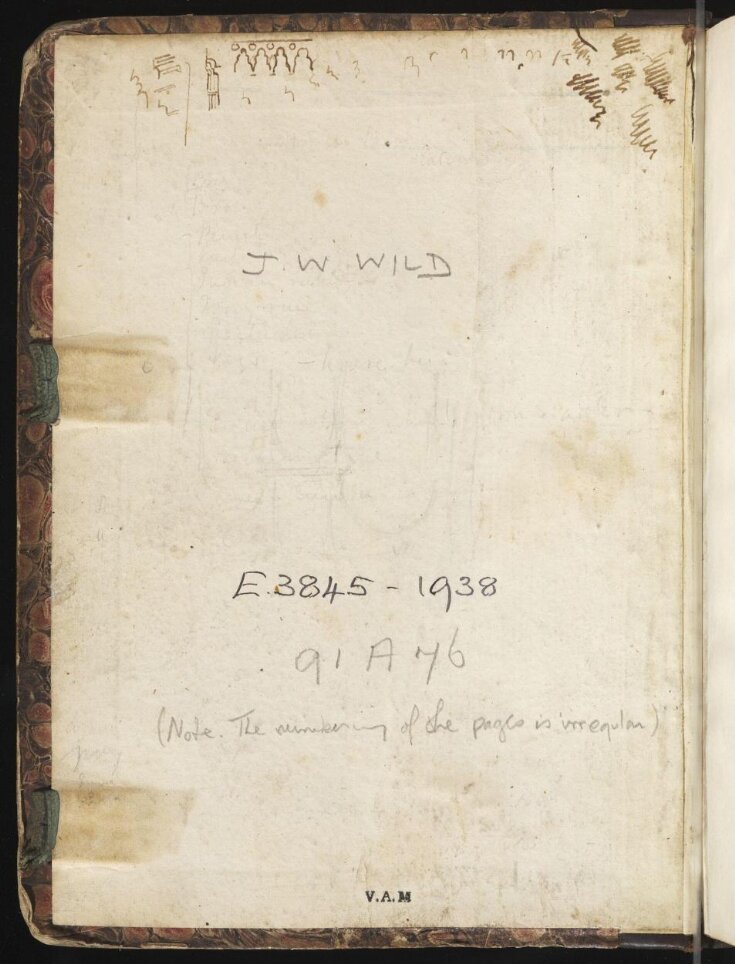 J. W WILD
E.3845 - 1938
91 A 76
(Note. The numbering of the pages is irregular)
V.A.M